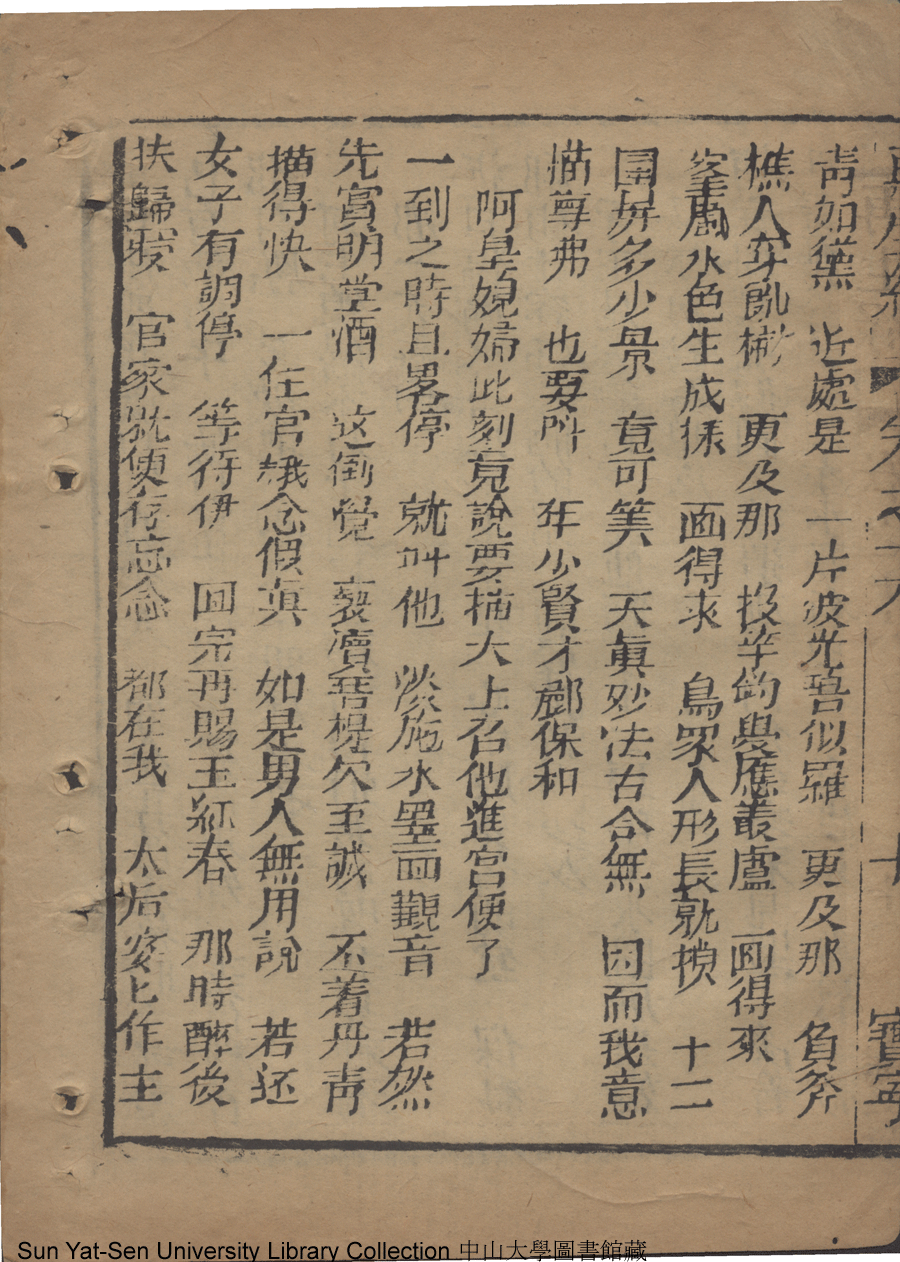 再生緣 卷之十六 十 寶寧
青如黛 近處是 一片波光碧似羅 更及那 負斧
樵人穿亂樹 更及那 投竿釣叟應叢蘆 画得來
峯嵐水色生成樣 画得求 鳥眾人形長就摸 十二
囲屏多少景 竟可筭 天眞妙法古今無 因而我意
描尊弗 也要呌 年少賢才酈保和
阿皇媳婦此刻竟說要描大上召他進宮便了
一到之時且畧停 就呌他 淡施水墨画觀音 若然
先賞明堂酒 这倒覺 褻瀆菩提欠至誠 不着丹青
描得快 一任官娥念假眞 如是男人無用說 若还
女子有調停 等待伊 回宗再賜玉紅春 那時醉後
扶歸寢 官家就使存忘念 都在我 太后安匕作主
Sun Yat-Sen University Library Collection 中山大學圖書館藏